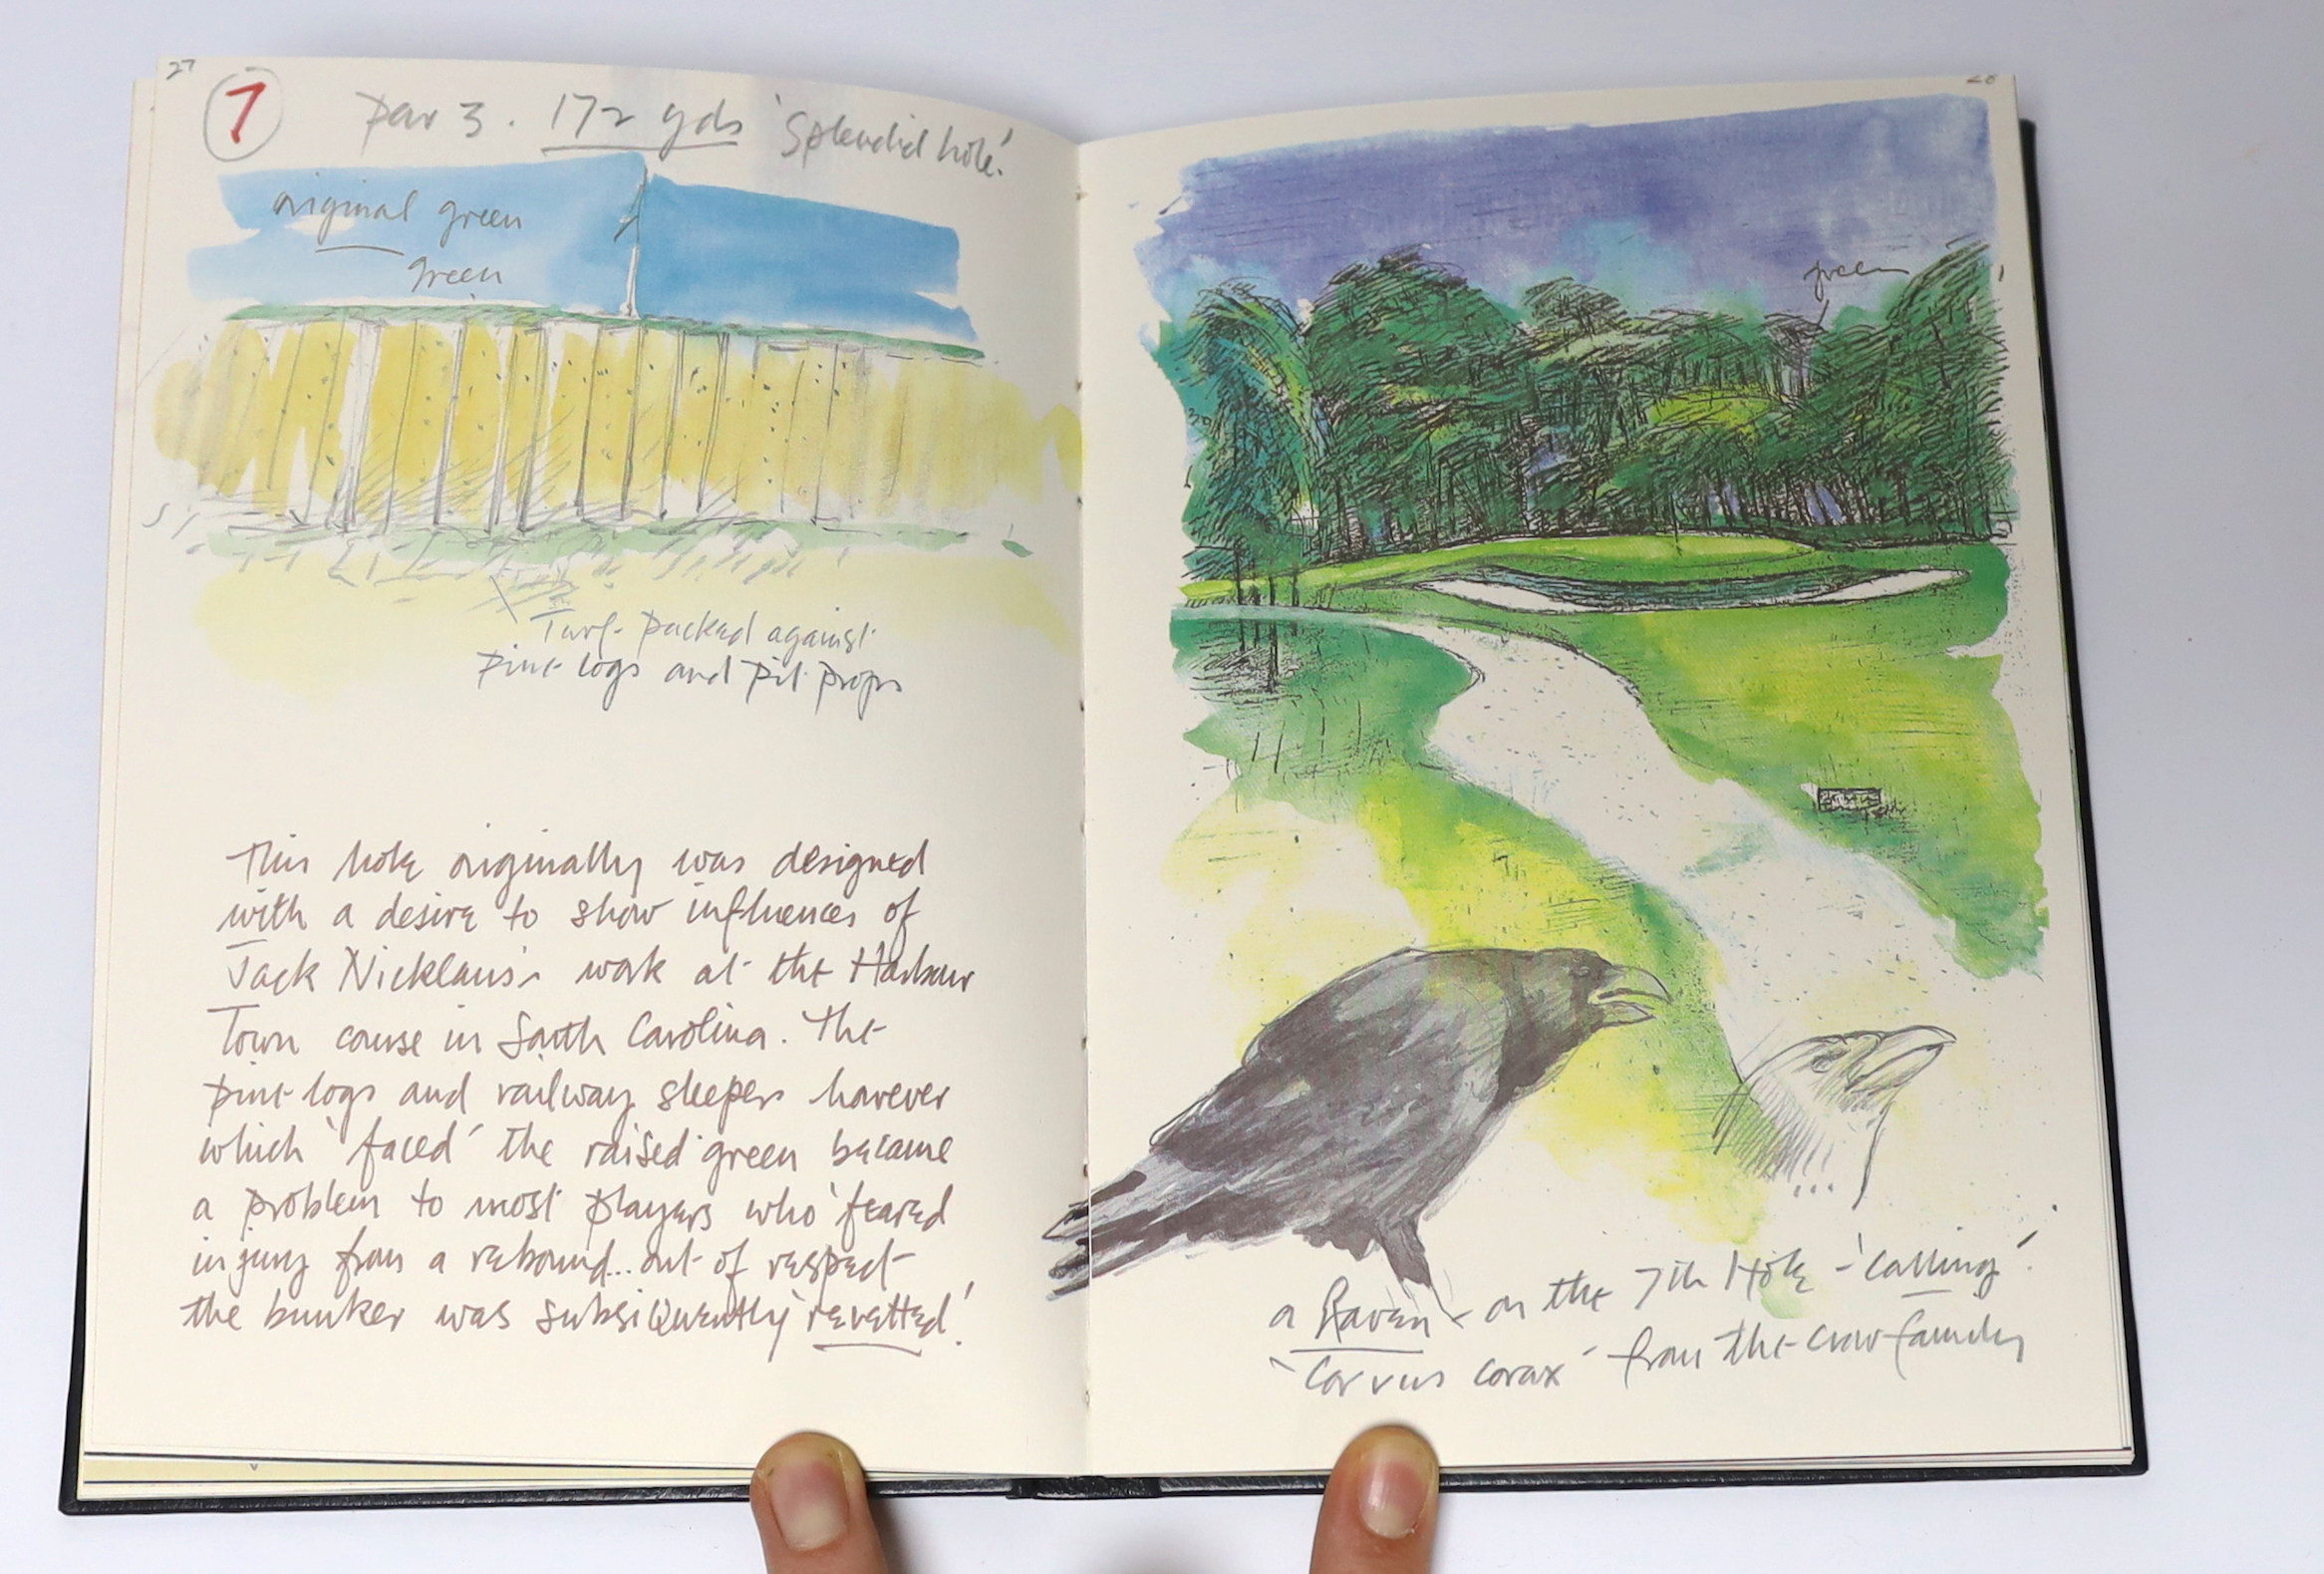 27
7 Par 3. 172 yds 'Splendid hole'.
original green
green
Turf packed against
pine logs and pit props
This hole originally was designed
with a desire to show influences of
Jack Nicklaus's work at the Harbour
Town course in South Carolina. The
pine logs and railway sleepers however
which 'faced' the raised green became
a problem to most players who 'feared
injury from a rebound... out of respect
the bunker was subsiquently 'revetted'!
28
green
a Raven on the 7th Hole - 'calling'.
'Corvus corax' from the crow family